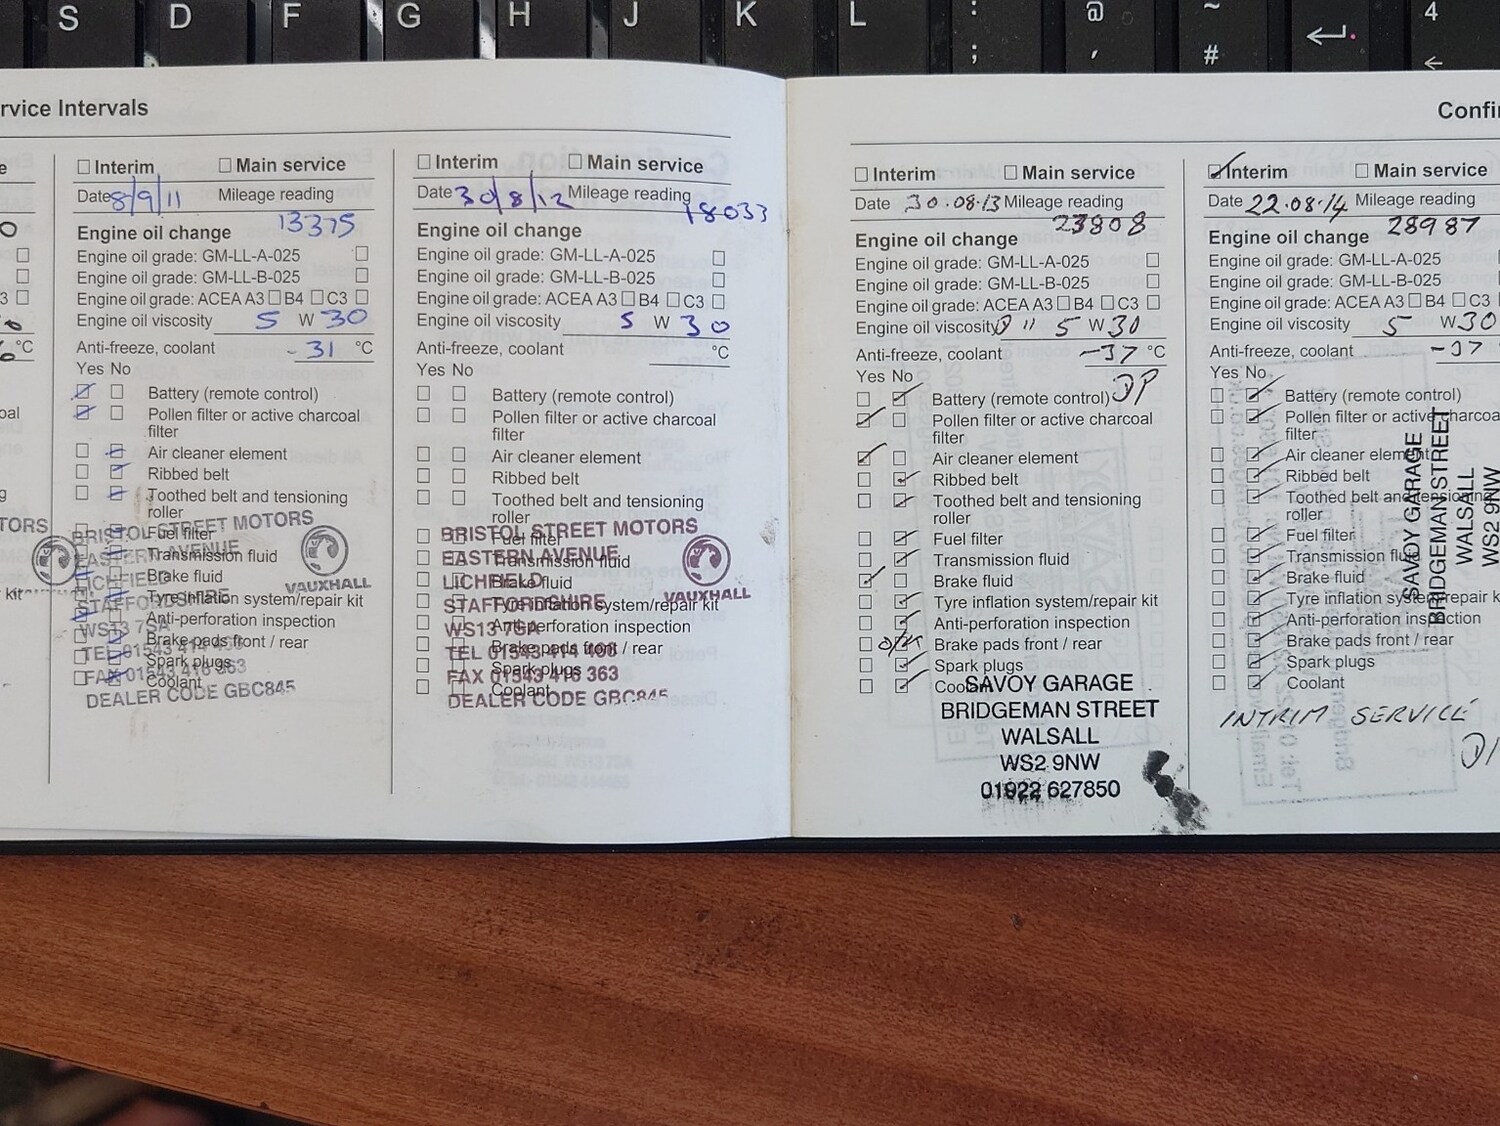 S D F G H J K L : ; @ ' ~ # 4
rvice Intervals
e
0
3
°C
oal
g
TORS
kit
Interim Main service
Date 8/9/11 Mileage reading
13375
Engine oil change
Engine oil grade: GM-LL-A-025
Engine oil grade: GM-LL-B-025
Engine oil grade: ACEA A3 B4 C3
Engine oil viscosity 5 W 30
Anti-freeze, coolant -31 °C
Yes No
Battery (remote control)
Pollen filter or active charcoal
filter
Air cleaner element
Ribbed belt
Toothed belt and tensioning
roller
Fuel filter
Transmission fluid
Brake fluid
Tyre inflation system/repair kit
Anti-perforation inspection
Brake pads front / rear
Spark plugs
Coolant
BRISTOL STREET MOTORS
EASTERN AVENUE
LICHFIELD
STAFFORDSHIRE
WS13 7SA
TEL 01543 414 4
FAX 01543 416 363
DEALER CODE GBC845
VAUXHALL
Interim Main service
Date 30/8/12 Mileage reading
18033
Engine oil change
Engine oil grade: GM-LL-A-025
Engine oil grade: GM-LL-B-025
Engine oil grade: ACEA A3 B4 C3
Engine oil viscosity 5 W 30
Anti-freeze, coolant °C
Yes No
Battery (remote control)
Pollen filter or active charcoal
filter
Air cleaner element
Ribbed belt
Toothed belt and tensioning
roller
Fuel filter
Transmission fluid
Brake fluid
Tyre inflation system/repair kit
Anti-perforation inspection
Brake pads front / rear
Spark plugs
Coolant
BRISTOL STREET MOTORS
EASTERN AVENUE
LICHFIELD
STAFFORDSHIRE
WS13 7SA
TEL 01543 414
FAX 01543 416 363
DEALER CODE GBC845
VAUXHALL
Confir
Interim Main service
Date 30.08.13 Mileage reading
23808
Engine oil change
Engine oil grade: GM-LL-A-025
Engine oil grade: GM-LL-B-025
Engine oil grade: ACEA A3 B4 C3
Engine oil viscosity 5 W 30
Anti-freeze, coolant -37 °C
Yes No
Battery (remote control) DP
Pollen filter or active charcoal
filter
Air cleaner element
Ribbed belt
Toothed belt and tensioning
roller
Fuel filter
Transmission fluid
Brake fluid
Tyre inflation system/repair kit
Anti-perforation inspection
Brake pads front / rear
Spark plugs
Coolant
SAVOY GARAGE
BRIDGEMAN STREET
WALSALL
WS2 9NW
01922 627850
Interim Main service
Date 22.08.14 Mileage reading
28987
Engine oil change
Engine oil grade: GM-LL-A-025
Engine oil grade: GM-LL-B-025
Engine oil grade: ACEA A3 B4 C3
Engine oil viscosity 5 W 30
Anti-freeze, coolant -37
Yes No
Battery (remote control)
Pollen filter or active charcoa
filter
Air cleaner element
Ribbed belt
Toothed belt and tensioning
roller
Fuel filter
Transmission fluid
Brake fluid
Tyre inflation system/repair k
Anti-perforation inspection
Brake pads front / rear
Spark plugs
Coolant
INTRIM SERVICE
SAVOY GARAGE
BRIDGEMAN STREET
WALSALL
WS2 9NW